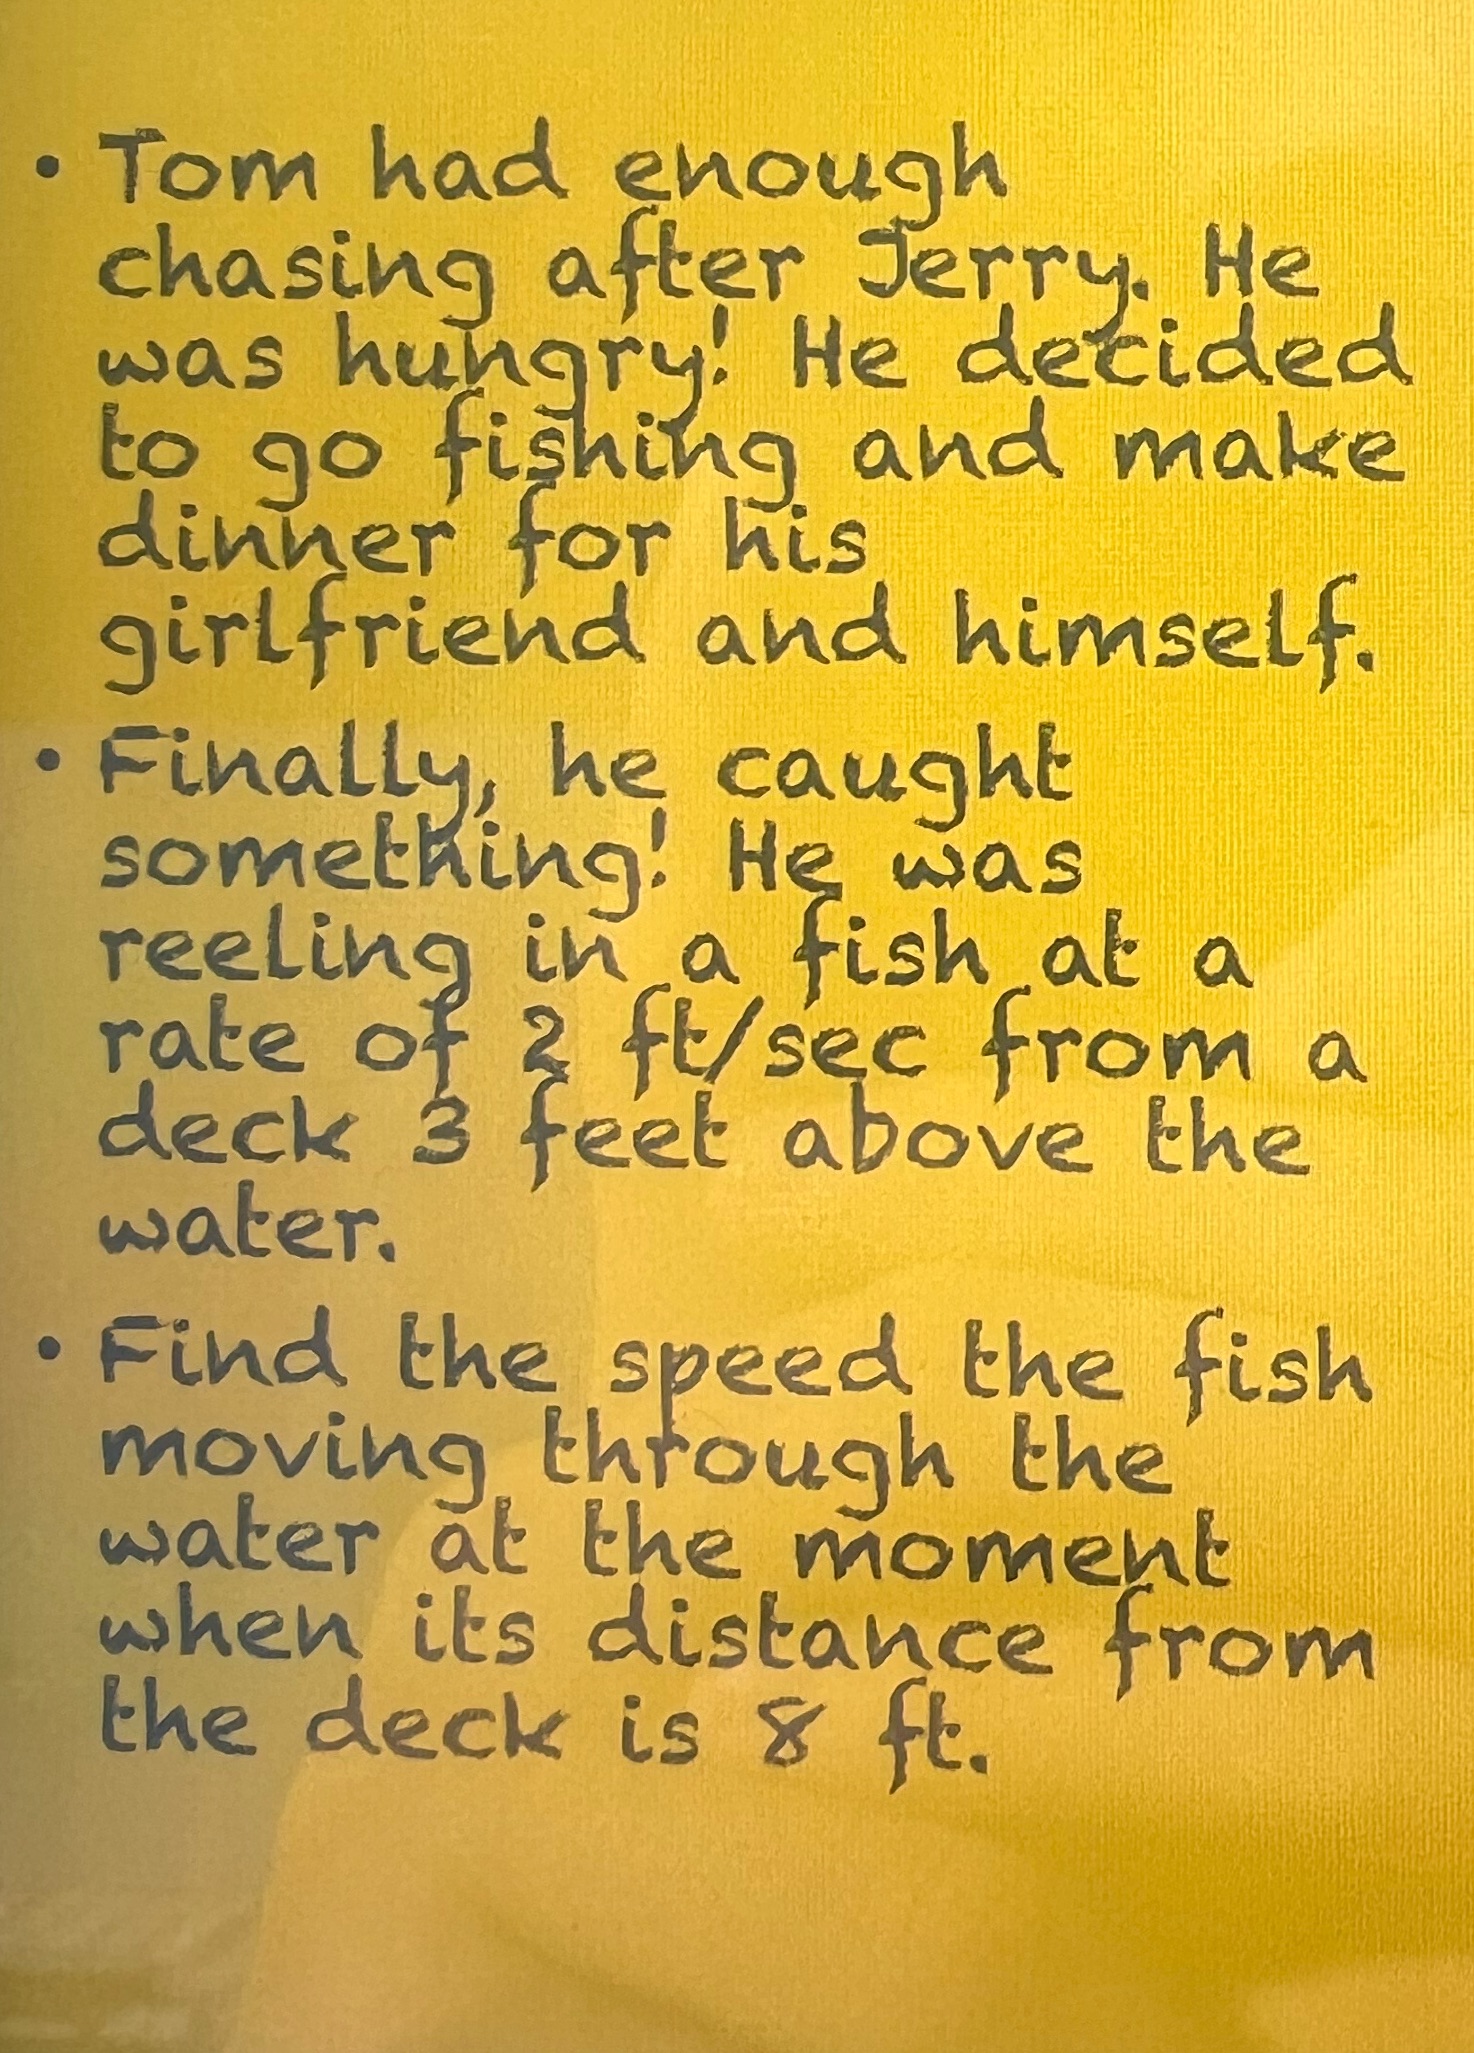 • Tom had enough
chasing after Jerry. He
was hungry! He decided
to go fishing and make
dinner for his
girlfriend and himself.
• Finally, he caught
something! He was
reeling in a fish at a
rate of 2 ft/sec from a
deck 3 feet above the
water.
• Find the speed the fish
moving through the
water at the moment
when its distance from
the deck is 8 ft.